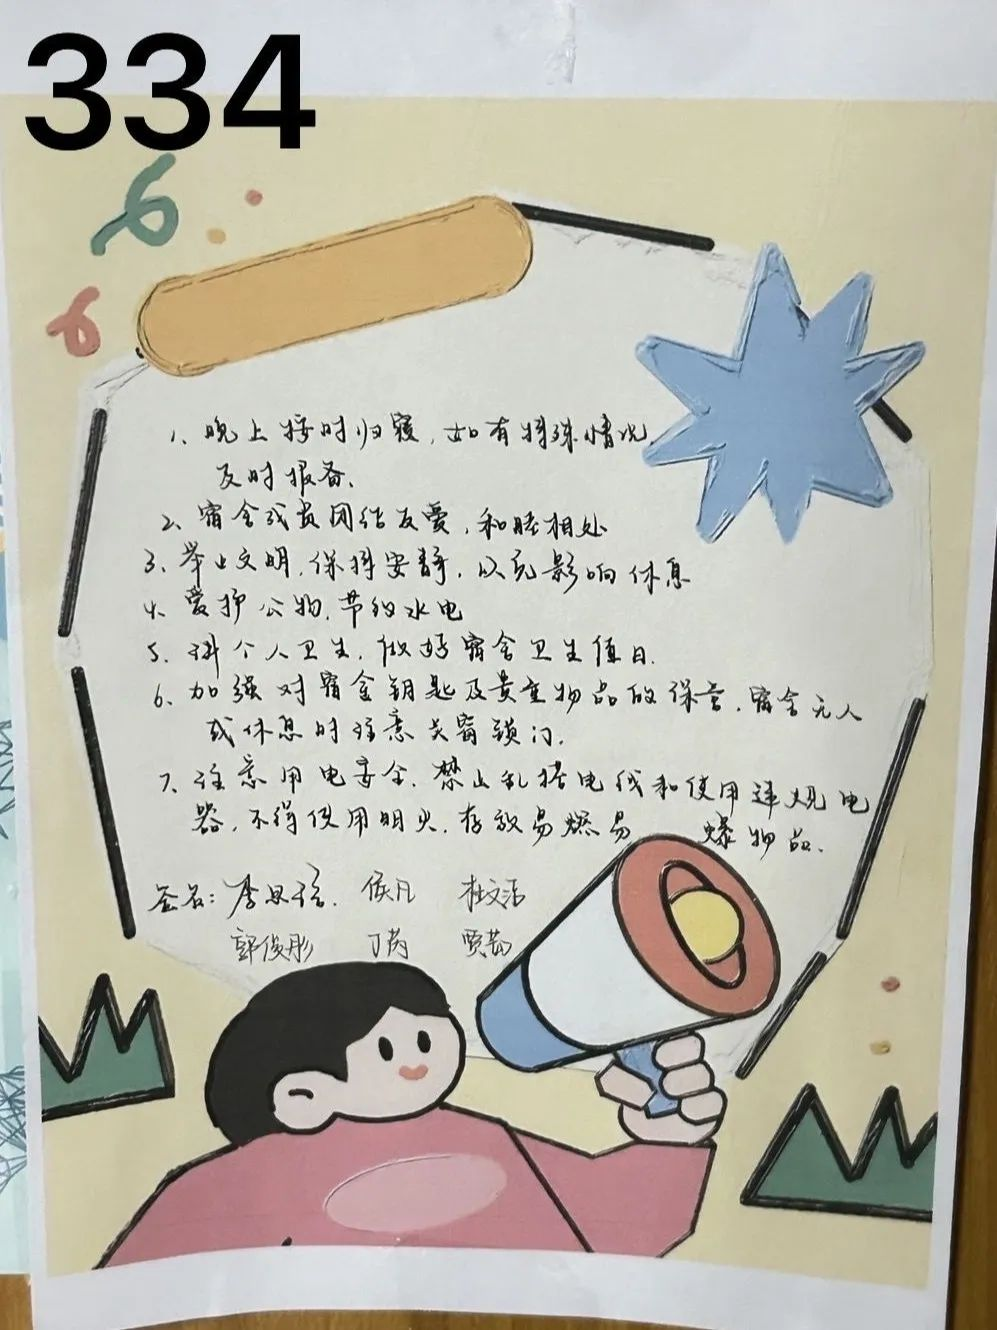 334
1、晚上按时归寝，如有特殊情况
及时报备、
2、宿舍成员团结友爱，和睦相处
3、举止文明，保持安静，以免影响休息
4、爱护公物，节约水电
5、讲个人卫生，做好宿舍卫生值日、
6、加强对宿舍钥匙及贵重物品的保管，宿舍无人
或休息时注意关窗锁门、
7、注意用电安全，禁止乱搭电线和使用违规电
器，不得使用明火，存放易燃易 爆物品、
签名： 侯凡 杜文洁
郭俊彤 丁芮 贾茹